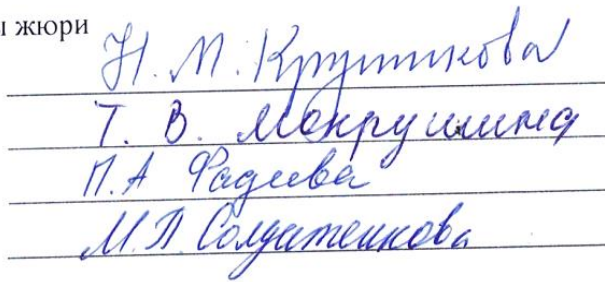 ы жюри
Н. М. Крутикова
Т. В. Мокрушина
П. А Фадеева
М. П. Солдатенкова